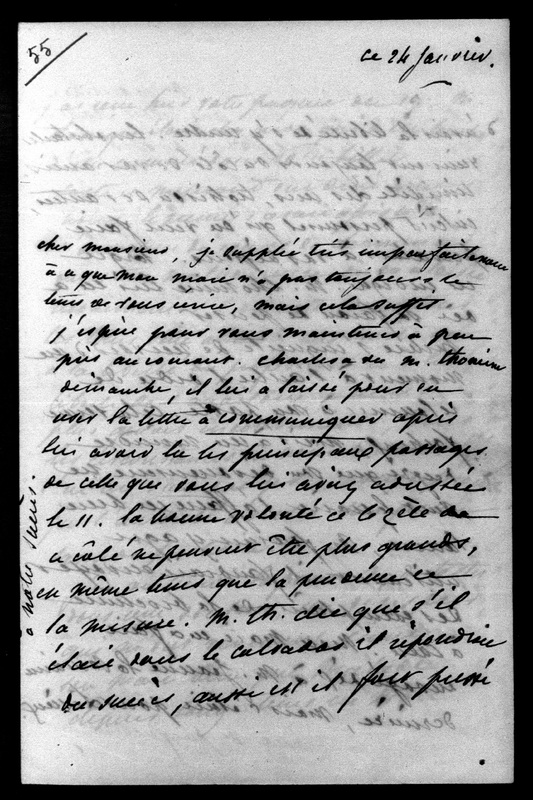 55
ce 24 Janvier.
cher monsieur, je supplée très imparfaitement
à ce que mon mari n'a pas toujours le
tems de vous écrire, mais cela suffit
j'espère pour vous maintenir à peu
près au courant. Charles a vu m. thomine
dimanche, il lui a laissé pour en
user la lettre à communiquer après
lui avoir lu les principaux passages
de celle que vous lui aviez adressée
le 11. la bonne volonté et le zèle de
ce côté ne peuvent être plus grands,
en même tems que la prudence et
la mesure. m. th. dit que s'il
était dans le calvados il répondrait
du succès, aussi est il fort pressé
à notre succès.